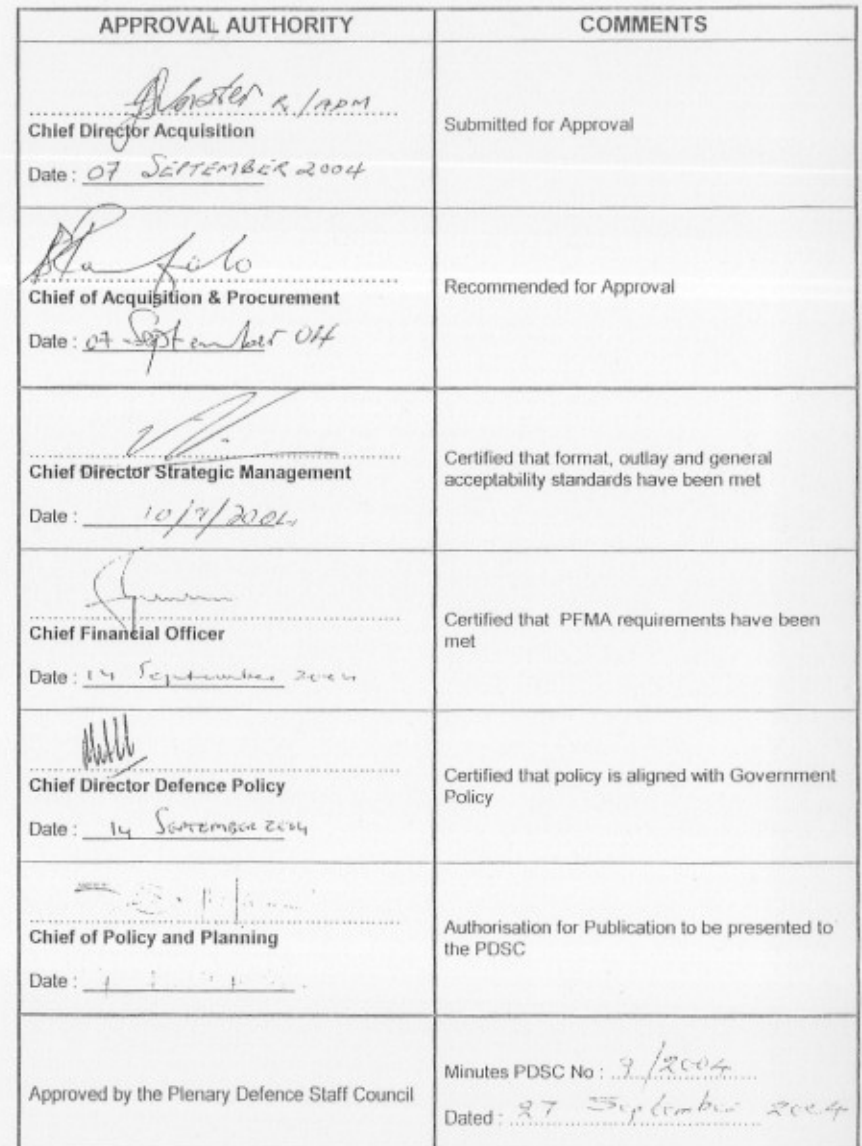 APPROVAL AUTHORITY
COMMENTS
R/ADM
Chief Director Acquisition
Date : 07 SEPTEMBER 2004
Submitted for Approval
Chief of Acquisition & Procurement
Date : 07 September 04
Recommended for Approval
Chief Director Strategic Management
Date : 10/9/2004
Certified that format, outlay and general
acceptability standards have been met
Chief Financial Officer
Date : 14 September 2004
Certified that PFMA requirements have been
met
Chief Director Defence Policy
Date : 14 SEPTEMBER 2004
Certified that policy is aligned with Government
Policy
Chief of Policy and Planning
Date :
Authorisation for Publication to be presented to
the PDSC
Approved by the Plenary Defence Staff Council
Minutes PDSC No : 9/2004
Dated : 27 September 2004